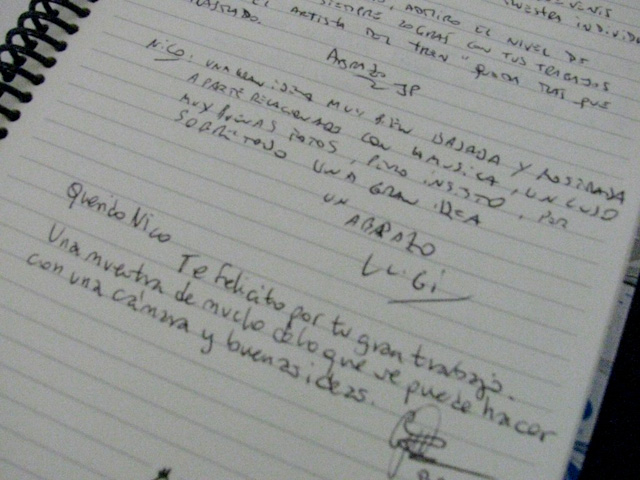 , ADMIRO EL NIVEL DE
SIEMPRE LOGRAS CON TUS TRABAJOS
EL ARTISTA DEL TREN"
ABRAZO
JP
NICO: UNA GRAN IDEA MUY BIEN BAJADA Y
APARTE RELACIONADO CON LA MUSICA, UN LUJO
MUY BUENAS FOTOS, PERO INSISTO, POR
SOBRE TODO UNA GRAN IDEA
UN
ABRAZO
LUIGI
Querido Nico
Te felicito por tu gran trabajo.
Una muestra de mucho de lo que se puede hacer
con una cámara y buenas ideas.